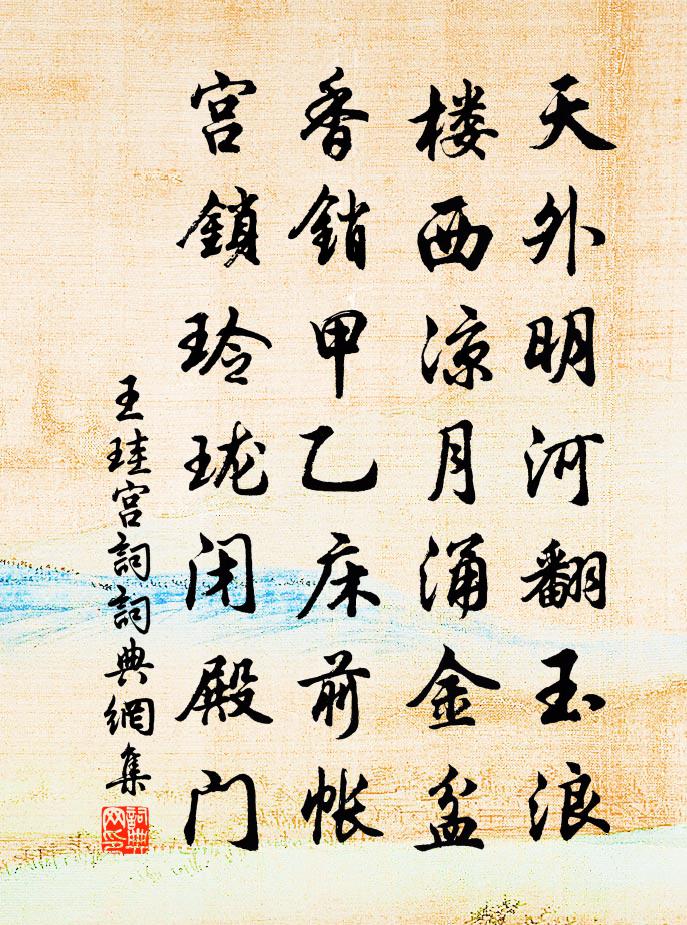 天外明河翻玉浪
楼西凉月涌金盆
香销甲乙床前帐
宫鎖玲珑闭殿门
王珪宫詞詞典網集
詞典网印